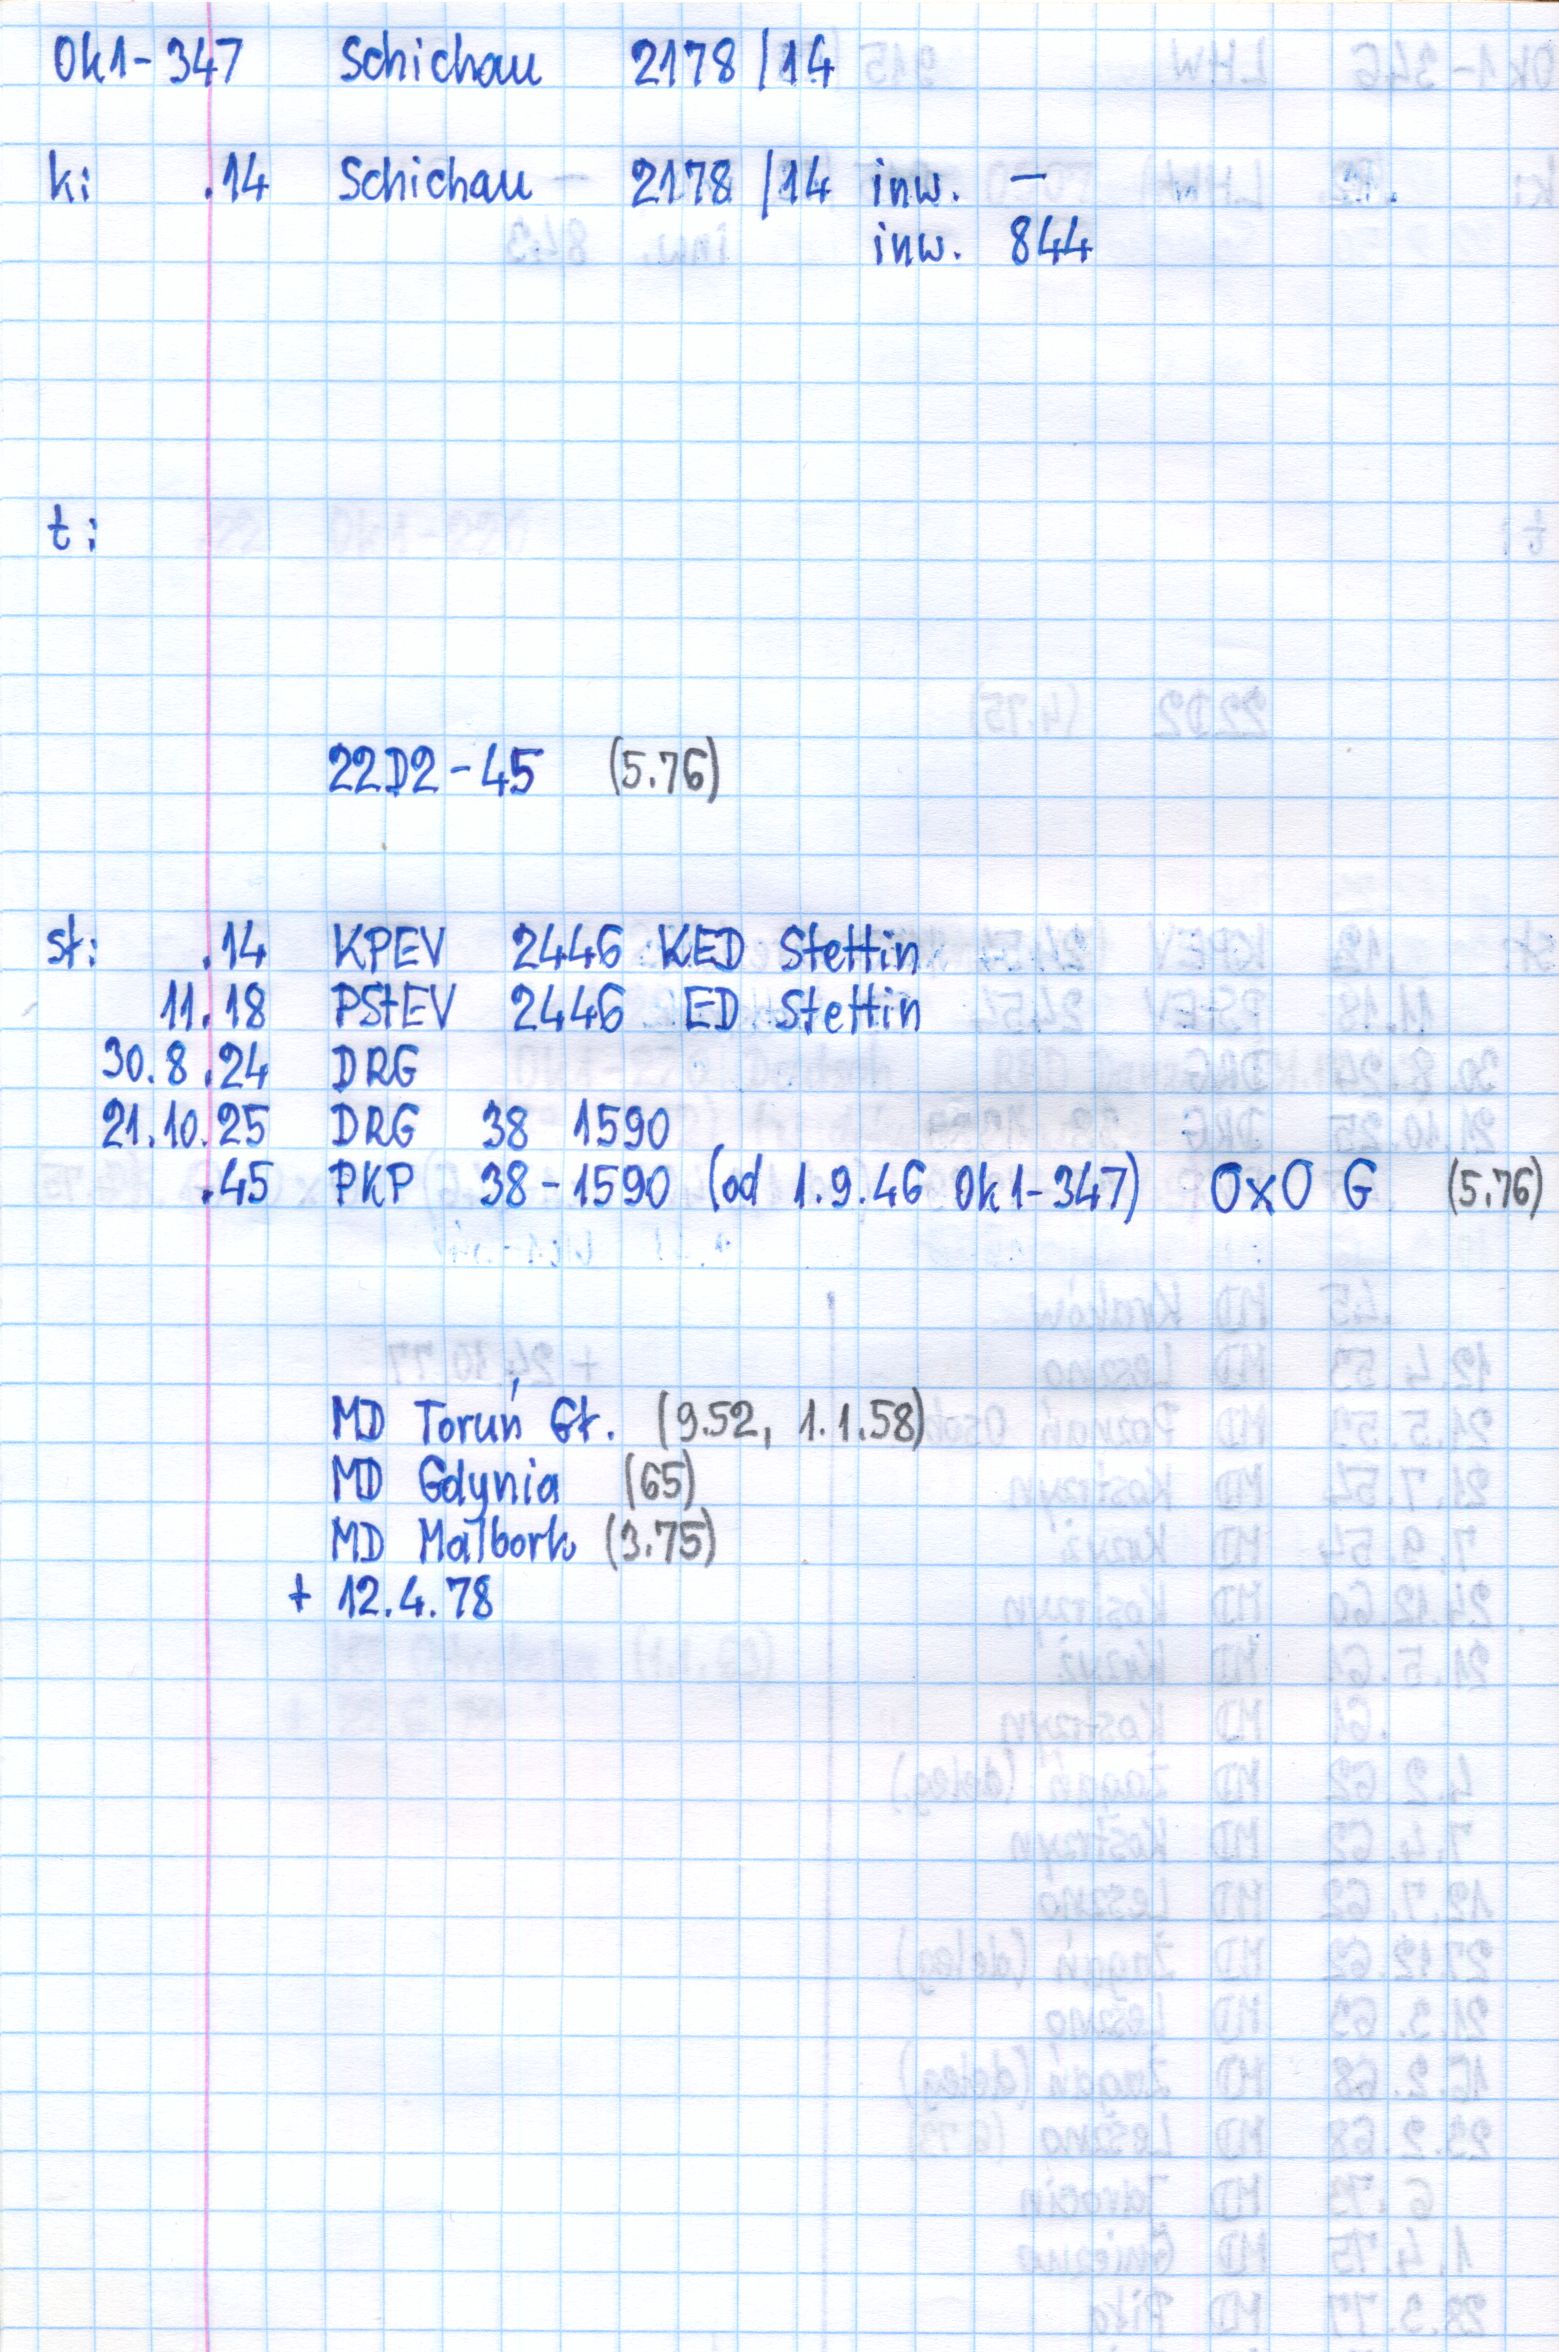 Ok1-347 Schichau 2178/14
k: .14 Schichau 2178/14 inw. –
inw. 844
t:
22D2-45 (5.76)
st: .14 KPEV 2446 KED Stettin
11.18 PStEV 2446 ED Stettin
30.8.24 DRG
21.10.25 DRG 38 1590
.45 PKP 38-1590 (od 1.9.46 Ok1-347) OxO G (5.76)
MD Toruń Gł. (9.52, 1.1.58)
MD Gdynia (65)
MD Malbork (3.75)
+ 12.4.78